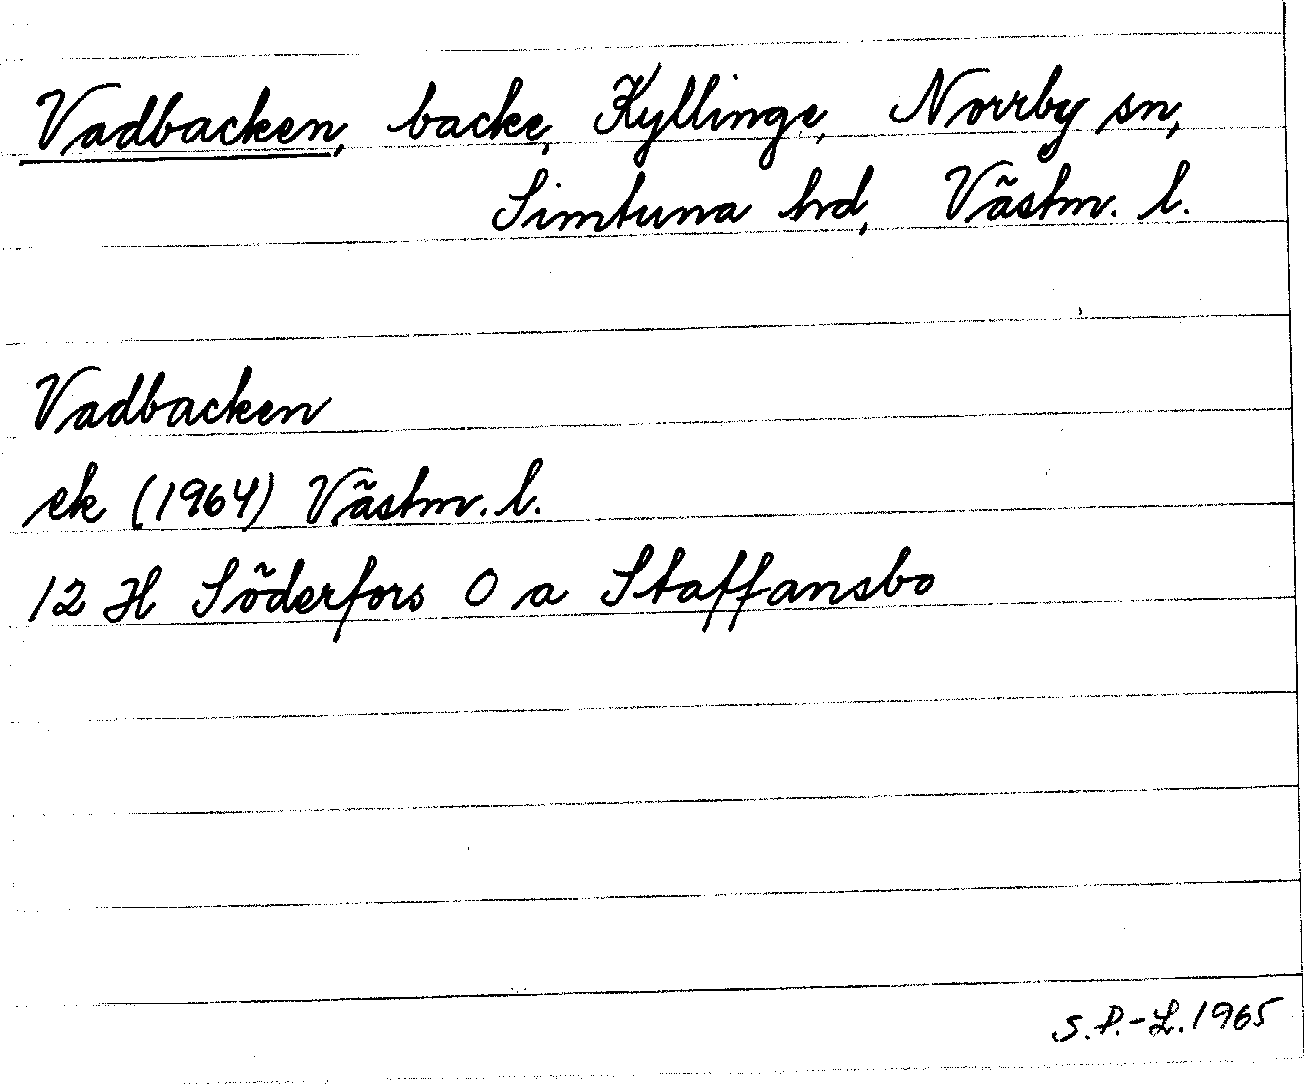 Vadbacken, backe, Kyllinge, Norrby sn,
Simtuna hd, Västm. l.
Vadbacken
ek (1964) Västm. l.
12 H Söderfors 0 a Staffansbo
S. P.-L. 1965